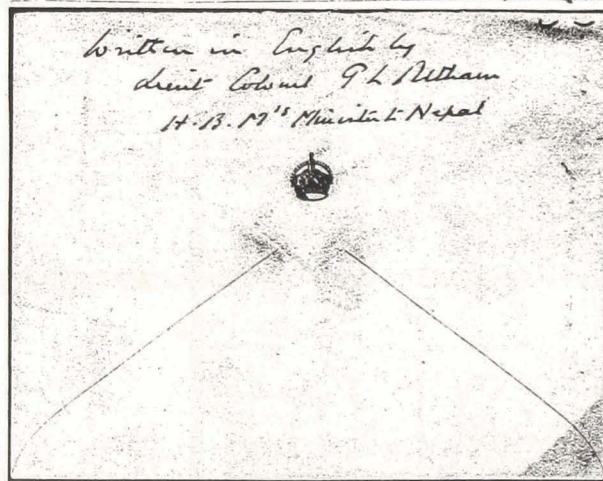 Written in English by
Lieut Colonel G L Betham
H. B. M's Minister to Nepal